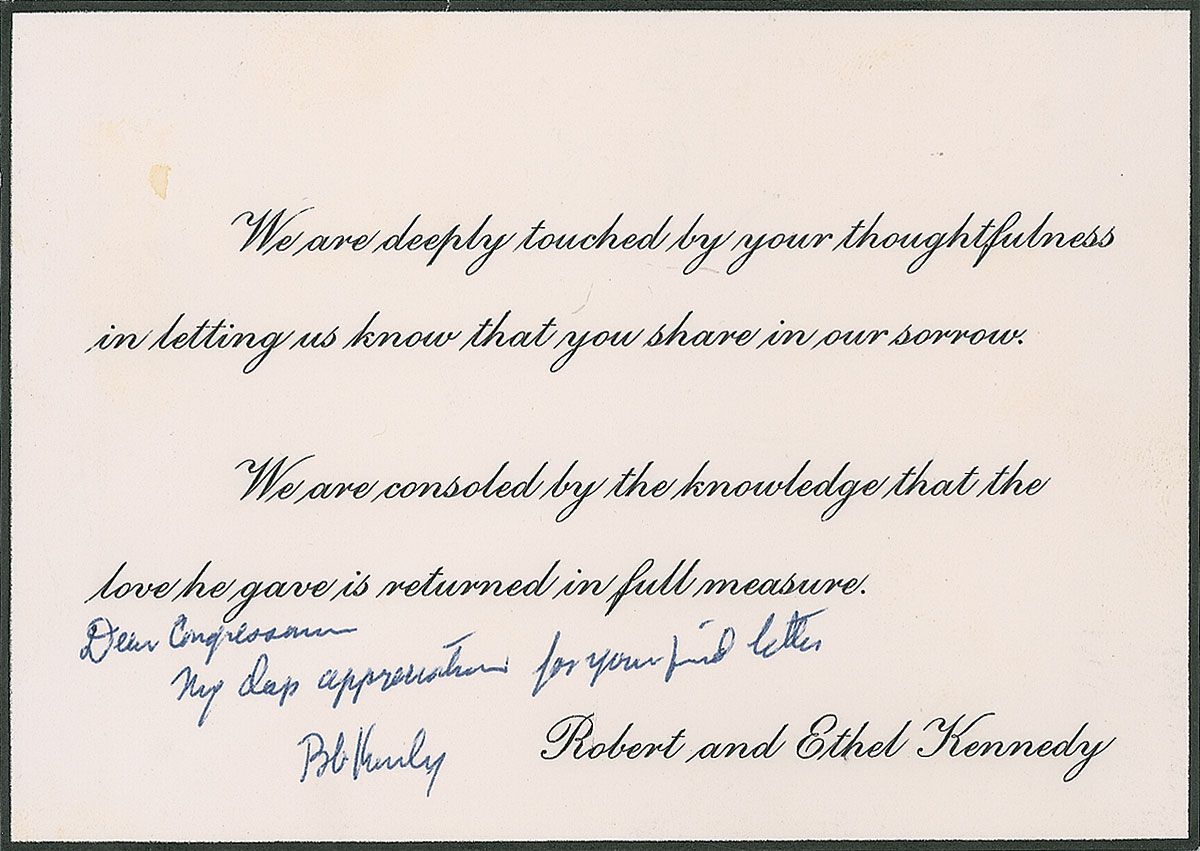 We are deeply touched by your thoughtfulness
in letting us know that you share in our sorrow.
We are consoled by the knowledge that the
love he gave is returned in full measure.
Dear Congressman
My deep appreciation for your kind letter
Bob Kennedy
Robert and Ethel Kennedy